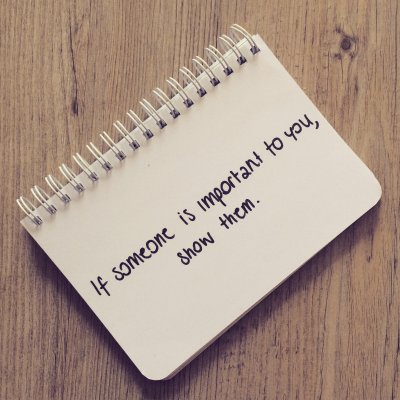 If someone is important to you,
show them.